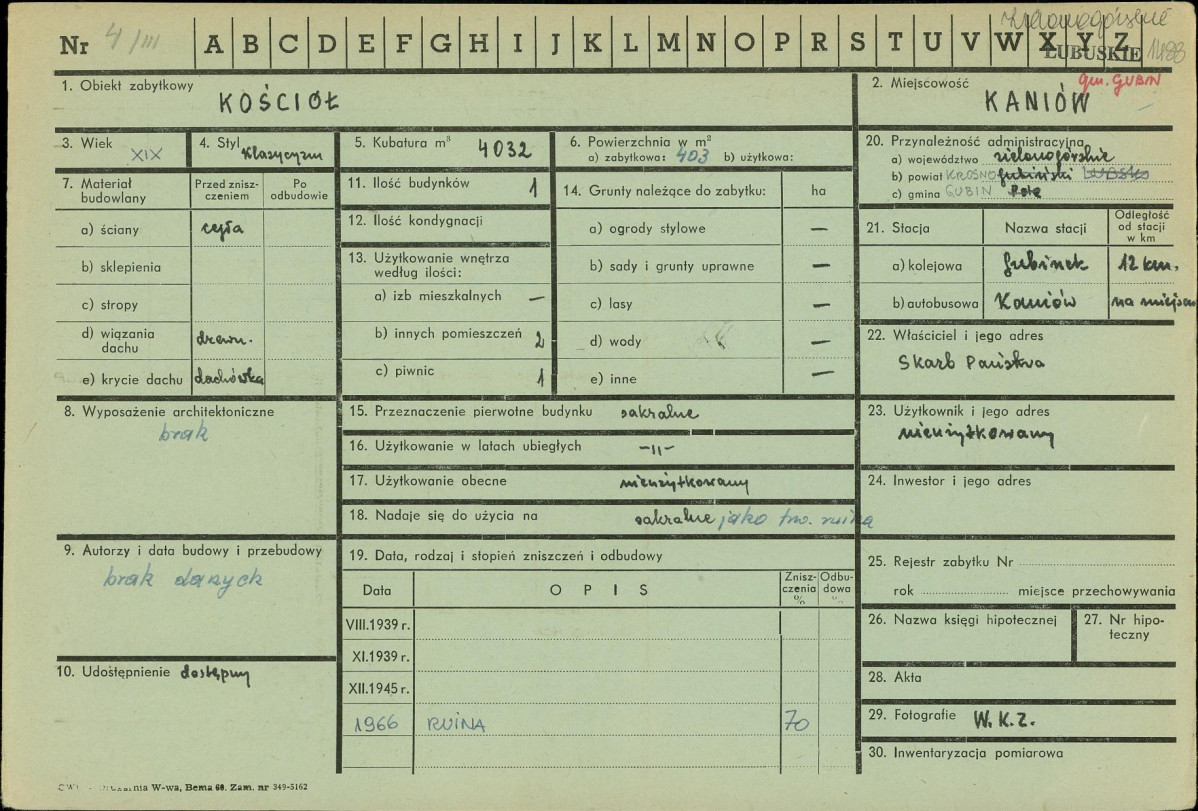 Nr 4/III A B C D E F G H I J K L M N O P R S T U V W X Y Z
LUBUSKIE 1488
1. Obiekt zabytkowy KOŚCIÓŁ
2. Miejscowość gm. GUBIN
KANIÓW
3. Wiek XIX
4. Styl Klasycyzm
5. Kubatura m³ 4032
6. Powierzchnia w m²
a) zabytkowa: 403 b) użytkowa:
20. Przynależność administracyjna
a) województwo zielonogórskie
b) powiat KROSNO gubiński LUBSKO
c) gmina GUBIN Pole
7. Materiał budowlany
Przed zniszczeniem
Po odbudowie
a) ściany cegła
b) sklepienia
c) stropy
d) wiązania dachu drewn.
e) krycie dachu dachówka
11. Ilość budynków 1
12. Ilość kondygnacji
13. Użytkowanie wnętrza
według ilości:
a) izb mieszkalnych —
b) innych pomieszczeń 2
c) piwnic 1
14. Grunty należące do zabytku: ha
a) ogrody stylowe —
b) sady i grunty uprawne —
c) lasy —
d) wody —
e) inne —
21. Stacja Nazwa stacji Odległość od stacji w km
a) kolejowa Gubinek 12 km.
b) autobusowa Kaniów na miejscu
22. Właściciel i jego adres
Skarb Państwa
8. Wyposażenie architektoniczne
brak
15. Przeznaczenie pierwotne budynku sakralne
16. Użytkowanie w latach ubiegłych -„-
17. Użytkowanie obecne nieużytkowany
18. Nadaje się do użycia na sakralne jako trw. ruina
23. Użytkownik i jego adres
nieużytkowany
24. Inwestor i jego adres
9. Autorzy i data budowy i przebudowy
brak danych
10. Udostępnienie dostępny
19. Data, rodzaj i stopień zniszczeń i odbudowy
Data OPIS Zniszczenia % Odbudowa %
VIII.1939 r.
XI.1939 r.
XII.1945 r.
1966 RUINA 70
25. Rejestr zabytku Nr
rok miejsce przechowywania
26. Nazwa księgi hipotecznej
27. Nr hipoteczny
28. Akta
29. Fotografie W.K.Z.
30. Inwentaryzacja pomiarowa
W-wa, Bema 60. Zam. nr 349-5162